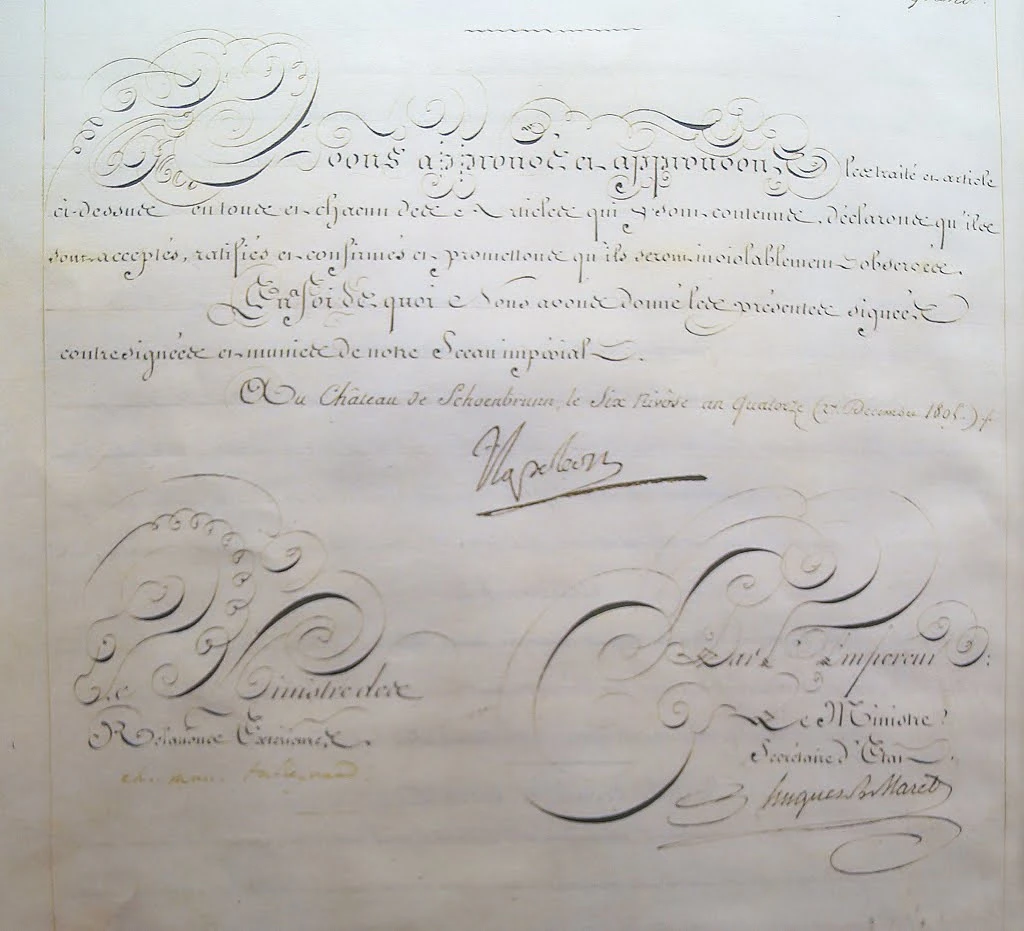 Avons approuvé et approuvons les traité et article
ci-dessus en tous et chacun des Articles qui y sont contenus, déclarons qu'ils
sont acceptés, ratifiés et confirmés et promettons qu'ils seront inviolablement observés.
En foi de quoi Nous avons donné les présentes signées
contresignées et munies de notre Sceau impérial.
Au Château de Schoenbrunn, le Six Nivôse an Quatorze (27. Decembre 1805.)
Napoleon
Le Ministre des
Relations Extérieures,
ch. mau. talleyrand
Par l'Empereur:
Le Ministre
Secrétaire d'Etat.
hugues B. Maret